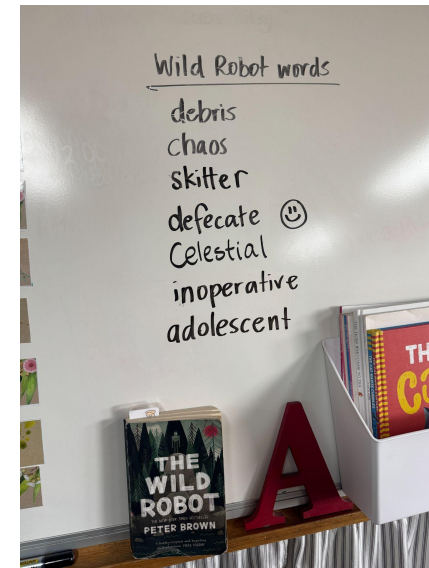 Wild Robot words
debris
chaos
skitter
defecate ☺
Celestial
inoperative
adolescent
THE
WILD
ROBOT
PETER BROWN
A
TH